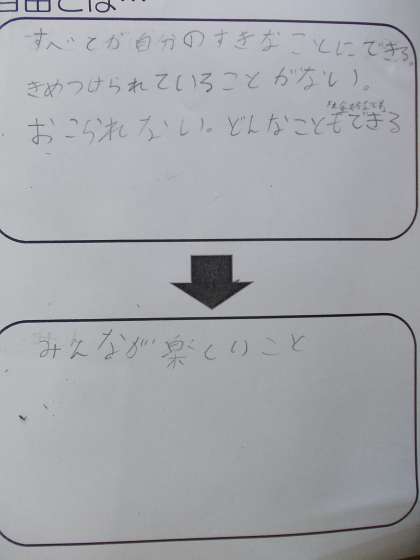 自由とは…
すべてが自分のすきなことにできる。
きめつけられていることがない。
おこられない。どんなこともできる
みんなが楽しいこと